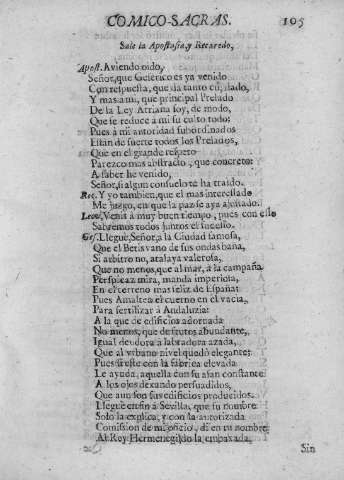 COMICO-SACRAS. 105
Sale la Apostasia, y Recaredo,
Apost. Aviendo oido,
Señor, que Gesèrico es ya venido
Con respuesta, que da tanto cuidado,
Y mas a mi, que principal Prelado
De la Ley Arriana soy, de modo,
Que se reduce a mi su culto todo:
Pues à mi autoridad subordinados
Estàn de suerte todos los Prelados,
Que en el grande respeto
Parezco mas abstracto, que concreto:
A saber he venido,
Señor, si algun consuelo te ha traido.
Rec. Y yo tambien, que el mas interessado
Me juzgo, en que la paz se aya ajustado.
Leov. Venis à muy buen tiempo, pues con esso
Sabremos todos juntos el sucesso.
Ges. Lleguè, Señor, a la Ciudad famosa,
Que el Betis vano de sus ondas baña,
Si arbitro no, atalaya valerosa,
Que no menos, que al mar, à la campaña
Perspicaz mira, manda imperiosa,
En el terreno mas feliz de España:
Pues Amaltea el cuerno en el vacia,
Para fertilizar à Andaluzia:
A la que de edificios adornada
No menos, que de frutos abundante,
Igual deudora à labradora azada,
Que al vrbano nivel quedò elegante:
Pues si este con la fabrica elevada
Le ayuda, aquella con su afan constante
A los ojos dexando persuadidos,
Que aun son sus edificios producidos.
Lleguè enfin à Sevilla, que su nombre
Solo la explica, y con la autorizada
Comission de mi oficio, di en tu nombre
Al Rey Hermenegildo la embaxada,
Sin